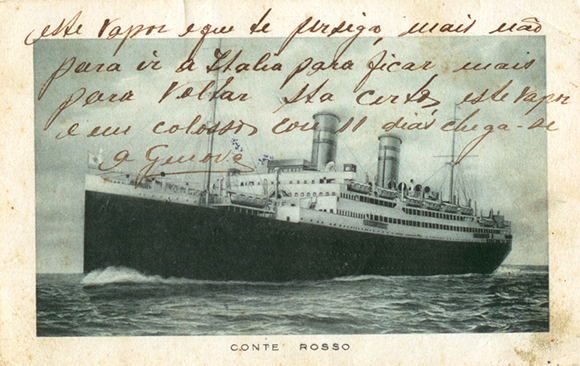 este vapor e que te persigo, mais não
para ir a Italia para ficar mais
para voltar sta certo, este vapor
e um colosso con 11 dias chega-se
a Genova
CONTE ROSSO